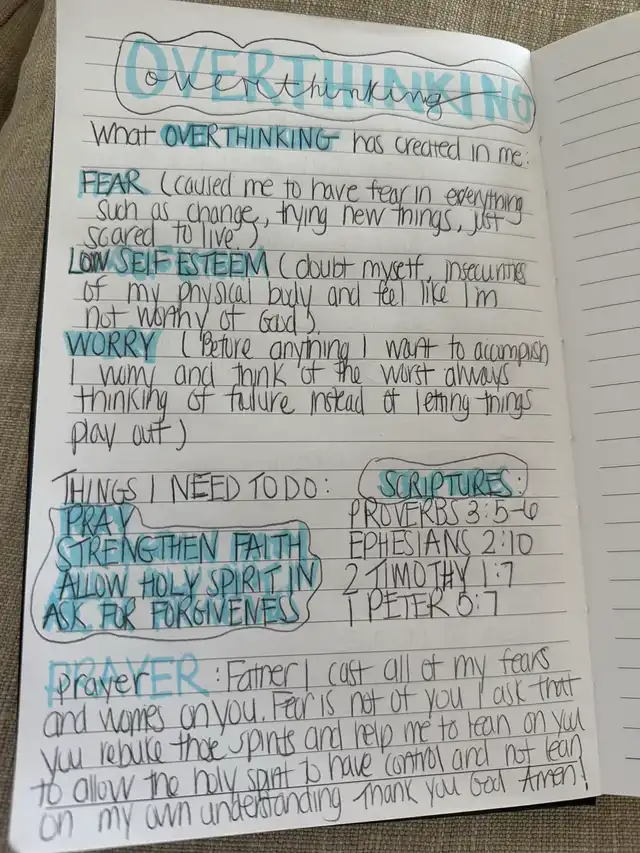 OVERTHINKING
overthinking
What OVERTHINKING has created in me:
FEAR (caused me to have fear in everything
such as change, trying new things, just
scared to live.)
LOW SELF ESTEEM (doubt myself, insecurities
of my physical body and feel like I'm
not worthy of God).
WORRY (Before anything I want to accomplish
I worry and think of the worst always
thinking of failure instead of letting things
play out)
THINGS I NEED TO DO:
PRAY
STRENGTHEN FAITH
ALLOW HOLY SPIRIT IN
ASK FOR FORGIVENESS
SCRIPTURES:
PROVERBS 3:5-6
EPHESIANS 2:10
2 TIMOTHY 1:7
1 PETER 5:7
PRAYER
prayer : Father I cast all of my fears
and worries on you. Fear is not of you I ask that
you rebuke those spirits and help me to lean on you
to allow the holy spirit to have control and not lean
on my own understanding Thank you God Amen!